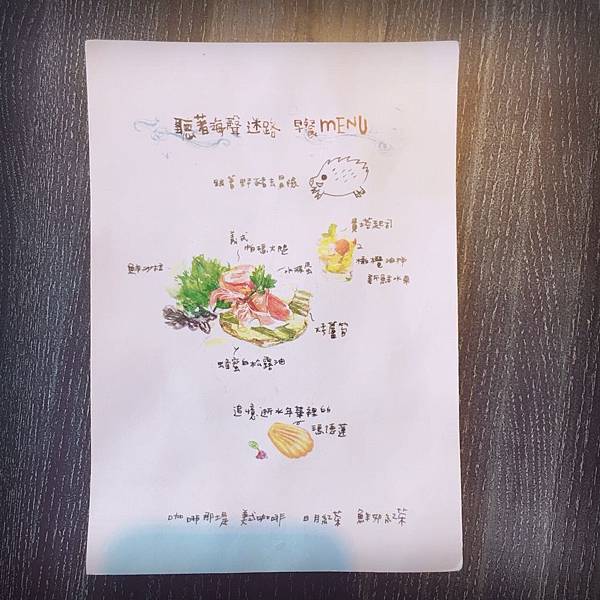 聽著海聲迷路 早餐MENU
跟著野豬去冒險
費塔起司
義式
帕瑪火腿
橄欖油拌
新鮮水果
鮮沙拉
水波蛋
烤蘆筍
蜂蜜白松露油
追憶逝水年華裡的
瑪德蓮
咖啡那堤 美式咖啡 日月紅茶 鮮奶紅茶